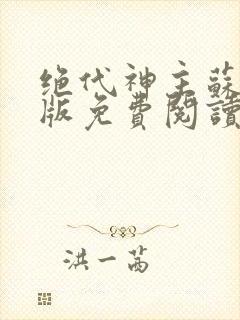 绝代神主蘇
版免費閱讀
洪一茜